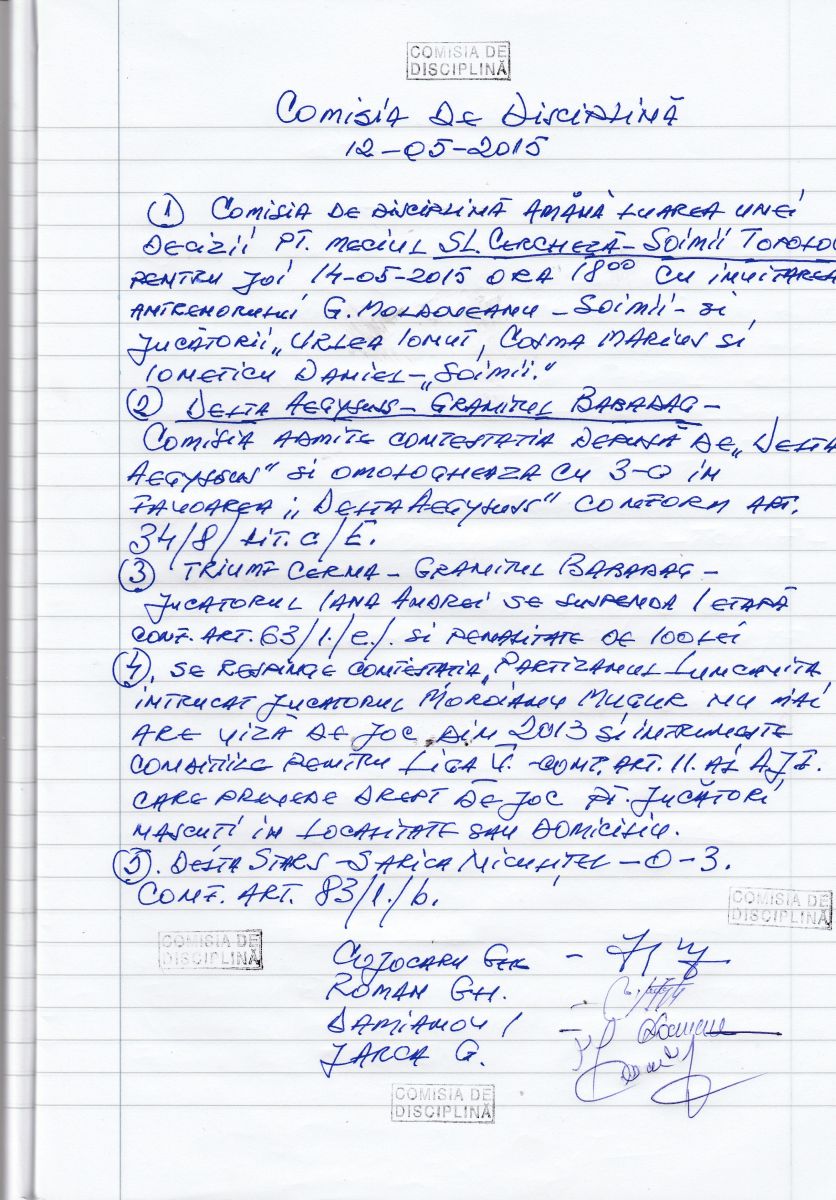 COMISIA DE
DISCIPLINĂ
COMISIA DE DISCIPLINĂ
12-05-2015
1 COMISIA DE DISCIPLINĂ AMÂNĂ LUAREA UNEI
DECIZII PT. MECIUL SL. CERCHEZĂ - SOIMII TOPOLOG
PENTRU JOI 14-05-2015 ORA 18⁰⁰ CU INVITAREA
ANTRENORULUI G. MOLDOVEANU - SOIMII - SI
JUCĂTORII „URLEA IONUȚ, COSMA MARIUS SI
IOMETICU DANIEL - „SOIMII."
2 DELTA AEGYSSUS - GRANITUL BABADAG -
COMISIA ADMITE CONTESTATIA DEPUSĂ DE „DELTA
AEGYSSUS" SI OMOLOGHEAZA CU 3-0 IN
FAVOAREA „DELTA AEGYSSUS" CONFORM ART.
34/8/LIT. C/E.
3 TRIUMF CERNA - GRANITUL BABADAG -
JUCATORUL IANA ANDREI SE SUSPENDA 1 ETAPĂ
CONF. ART. 63/1./e./. SI PENALITATE DE 100 LEI
4. SE RESPINGE CONTESTATIA „PARTIZANUL LUNCAVITA
INTRUCAT JUCATORUL MOROIANU MUGUR NU MAI
ARE VIZĂ DE JOC DIN 2013 SI INTRUNESTE
CONDITIILE PENTRU LIGA V. - CONF. ART. 11. AL AJF.
CARE PREVEDE DREPT DE JOC PT. JUCĂTORI
NASCUTI IN LOCALITATE SAU DOMICILIU.
5. DELTA STARS - SARICA NICULITEL - 0-3.
CONF. ART. 83/1./b.
COMISIA DE
DISCIPLINĂ
COMISIA DE
DISCIPLINĂ
COJOCARU -
ROMAN GH.
DAMIANOV I
JARCA G.
COMISIA DE
DISCIPLINĂ